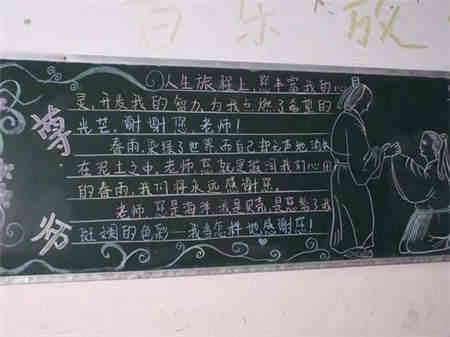 百乐放
尊师
人生旅程上,您丰富我的心
灵,开发我的智力,为我点燃了希望的
光芒,谢谢您,老师!
春雨,染绿了世界,而自己却无声地消失
在泥土之中。老师,您就是滋润我们心田
的春雨,我们将永远感谢您。
老师,您是海洋,我是贝壳,是您给了我
斑斓的色彩…我当怎样地感谢您!